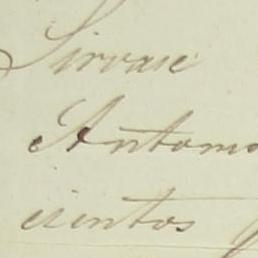 Sirvase
Antonio
cientos